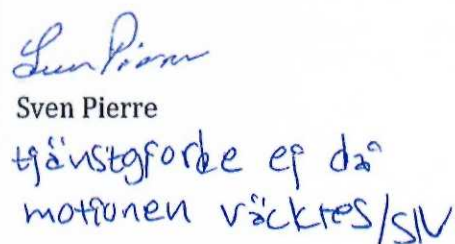 Sven Pierre
Sven Pierre
tjänstgjorde ej då
motionen väcktes/SIV